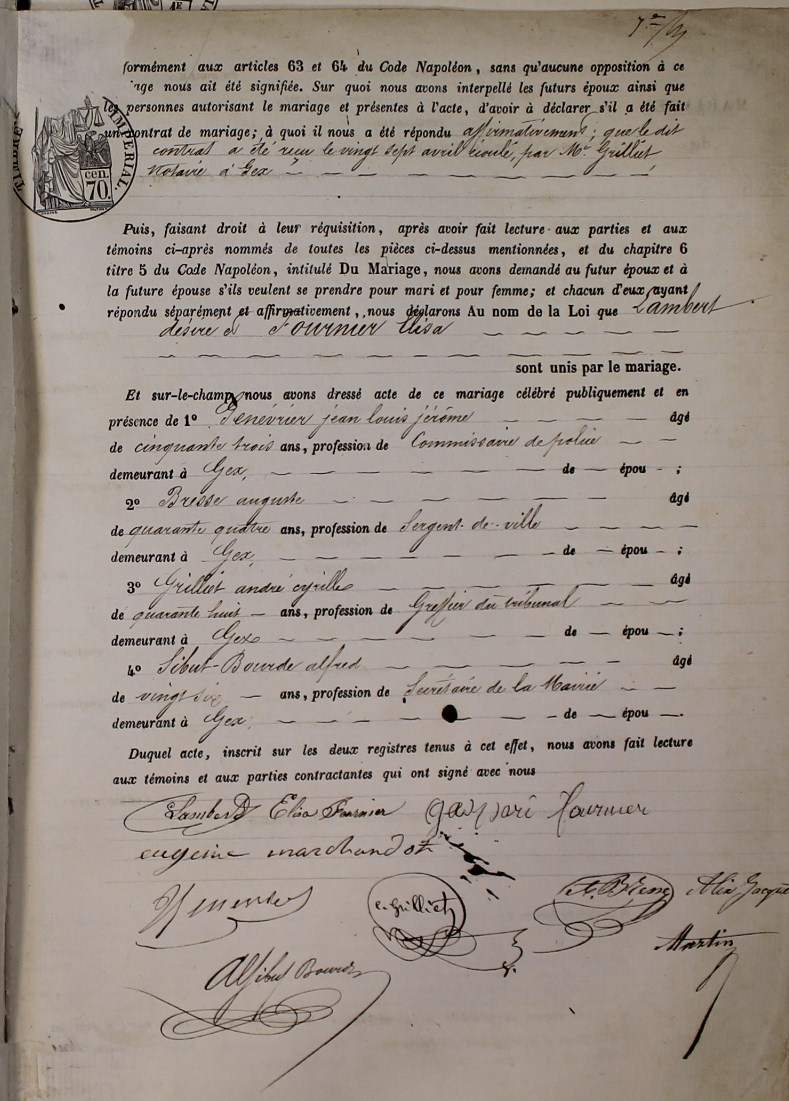 formément aux articles 63 et 64 du Code Napoléon, sans qu'aucune opposition à ce
age nous ait été signifiée. Sur quoi nous avons interpellé les futurs époux ainsi que
les personnes autorisant le mariage et présentes à l'acte, d'avoir à déclarer s'il a été fait
un contrat de mariage; à quoi il nous a été répondu affirmativement; que le dit
contrat a été reçu le vingt sept avril écoulé, par Me Grilliet
notaire à Gex
TIMBRE IMPERIAL.
70 cen.
Puis, faisant droit à leur réquisition, après avoir fait lecture aux parties et aux
témoins ci-après nommés de toutes les pièces ci-dessus mentionnées, et du chapitre 6
titre 5 du Code Napoléon, intitulé Du Mariage, nous avons demandé au futur époux et à
la future épouse s'ils veulent se prendre pour mari et pour femme; et chacun d'eux ayant
répondu séparément et affirmativement, nous déclarons Au nom de la Loi que Lambert
désiré et Fournier élisa
sont unis par le mariage.
Et sur-le-champ nous avons dressé acte de ce mariage célébré publiquement et en
présence de 1º Penévrier jean louis jérôme âgé
de cinquante trois ans, profession de Commissaire de police
demeurant à Gex, de — épou - ;
2º Bresse auguste âgé
de quarante quatre ans, profession de Sergent-de-ville
demeurant à Gex, de — épou - ;
3º Grilliet andré cyrille âgé
de quarante huit — ans, profession de Greffier du tribunal
demeurant à Gex de — épou — ;
4º Sibut-Bourde alfred âgé
de vingt six — ans, profession de Secrétaire de la Mairie
demeurant à Gex, de — épou —.
Duquel acte, inscrit sur les deux registres tenus à cet effet, nous avons fait lecture
aux témoins et aux parties contractantes qui ont signé avec nous
Lambert D Elisa Fournier gaspard fournier
eugenie marchandot
c. Grilliet A. Bresse Alix Jacque
Martin
A Sibut Bourde